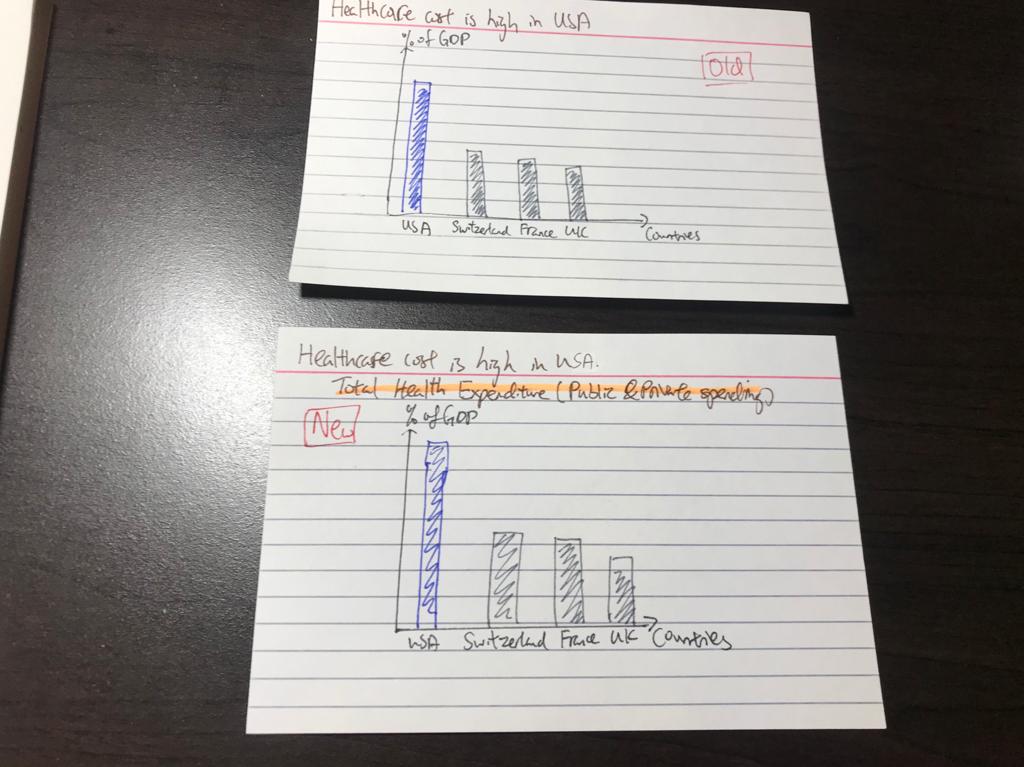 Healthcare cost is high in USA
% of GDP
Old
USA Switzerland France UK Countries
Healthcare cost is high in USA.
Total Health Expenditure (Public & Private spending)
% of GDP
New
USA Switzerland France UK Countries